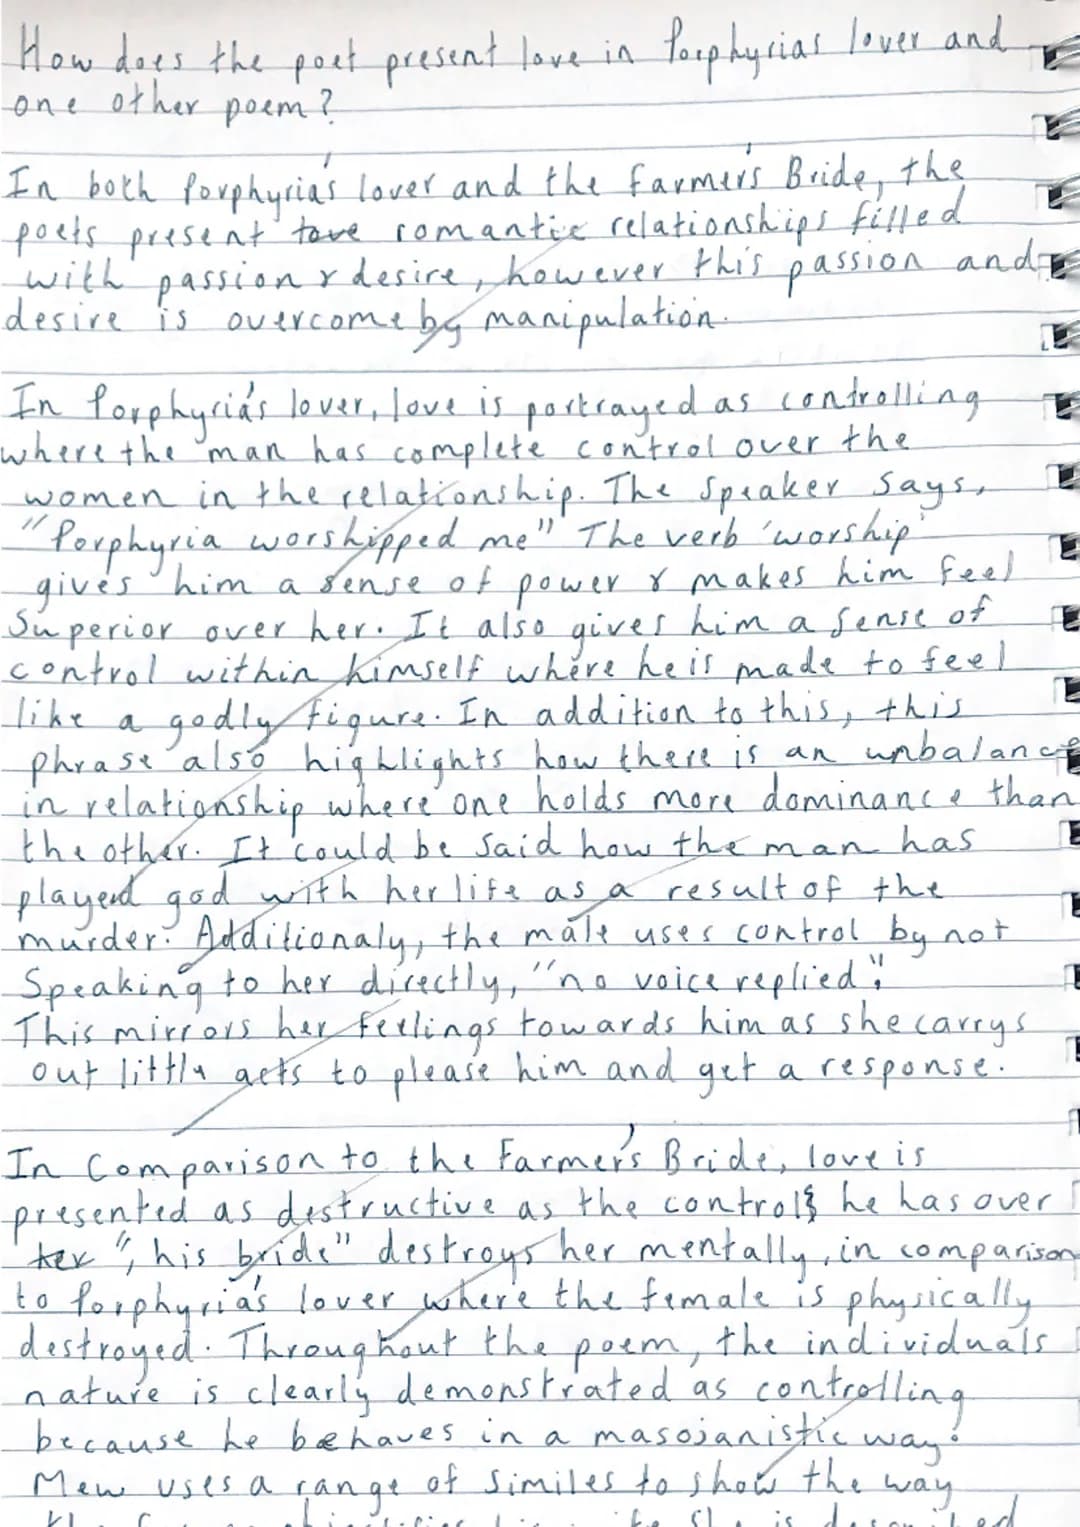 How does the poet present love in Porphyrias lover and
one other poem?
In both Porphyria's lover and the Farmer's Bride, the
poets present love romantic relationships filled
with passion & desire, however this passion and
desire is overcome by manipulation.
In Porphyria's lover, love is portrayed as controlling
where the man has complete control over the
women in the relationship. The Speaker says,
"Porphyria worshipped me" The verb 'worship'
gives him a sense of power & makes him feel
Superior over her. It also gives him a sense of
control within himself where he is made to feel
like a godly figure. In addition to this, this
phrase also highlights how there is an unbalance
in relationship where one holds more dominance than
the other. It could be said how the man has
played god with her life as a result of the
murder. Additionaly, the male uses control by not
Speaking to her directly, "no voice replied".
This mirrors her feelings towards him as she carrys
out little acts to please him and get a response.
In Comparison to the Farmer's Bride, love is
presented as destructive as the control he has over
her ", his bride" destroys her mentally, in comparison
to Porphyria's lover where the female is physically
destroyed. Throughout the poem, the individuals
nature is clearly demonstrated as controlling
because he behaves in a masojanistic way.
Mew uses a range of similes to show the way